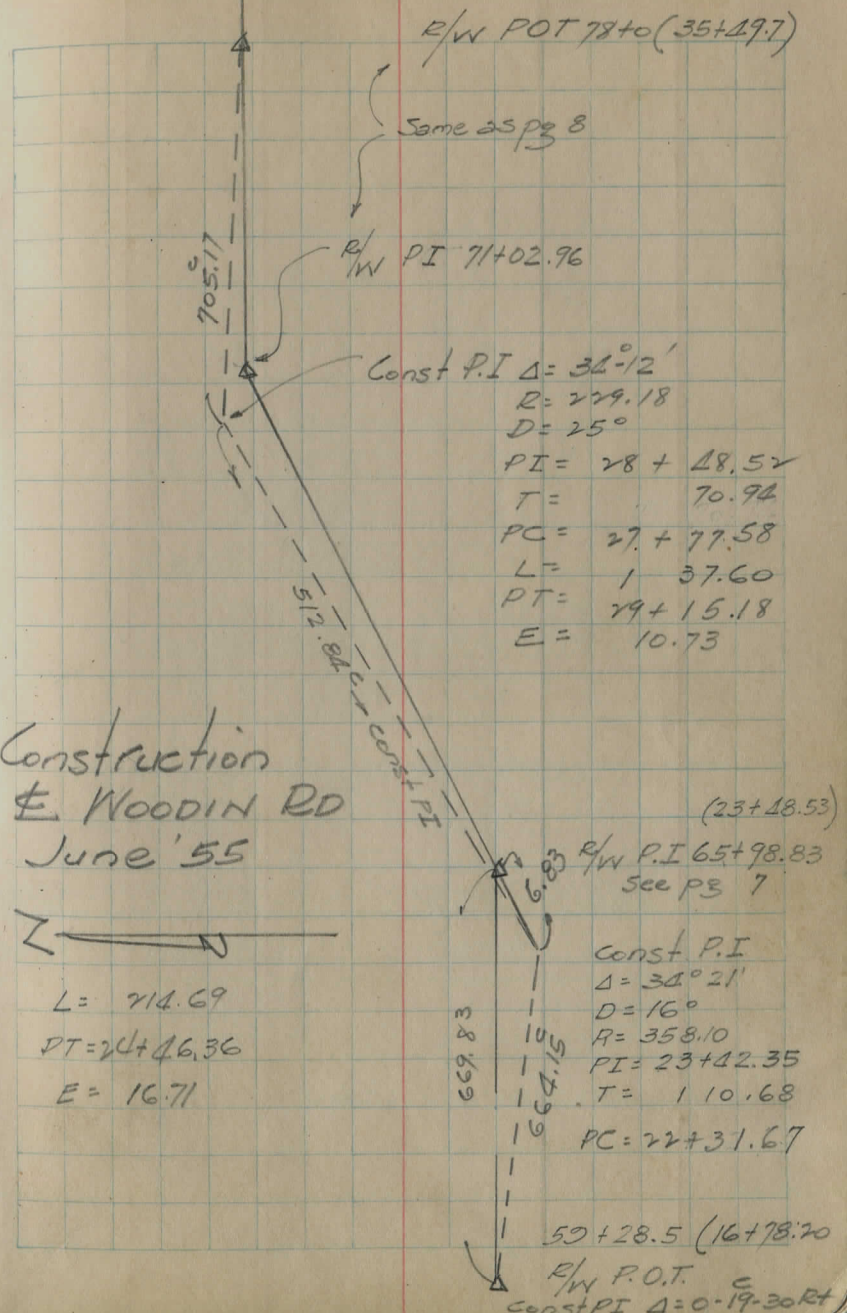 R/W POT 78+0 (35+49.7)
Same as pg 8
705.17 c
R/W PI 71+02.96
Const P.I Δ= 34°-12'
R= 229.18
D= 25°
PI= 28 + 48.52
T= 70.94
PC= 27 + 77.58
L= 1 37.60
PT= 29 + 15.18
E= 10.73
512.84 c const PI
Construction
℄ WOODIN RD
June '55
L= 214.69
PT=24+46.36
E= 16.71
(23+48.53)
R/W P.I 65+98.83
See pg 7
6.83
Const P.I
Δ= 34° 21'
D= 16°
R= 358.10
PI= 23+42.35
T= 1 10.68
PC= 22+31.67
669.83
664.15 c
59+28.5 (16+78.20
R/W P.O.T. c
Const PI Δ=0-19-30 Rt)